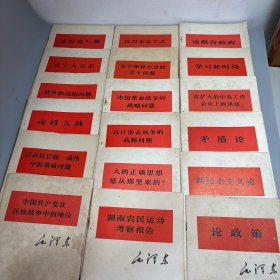 反对党八股
反对本本主义
论联合政府
论十大关系
关于领导方法的
若干问题
学习和时局
战争和战略问题
中国革命战争的
战略问题
在扩大的中央工作
会议上的讲话
论持久战
抗日游击战争的
战略问题
矛盾论
目前抗日统一战线
中的策略问题
人的正确思想
是从哪里来的？
新民主主义论
中国共产党在
民族战争中的地位
毛泽东
湖南农民运动
考察报告
毛泽东
论政策
毛泽东